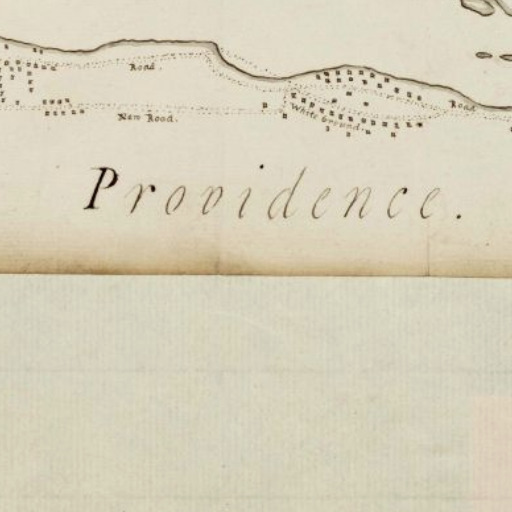 Road.
Road
White Ground.
New Road.
Providence.